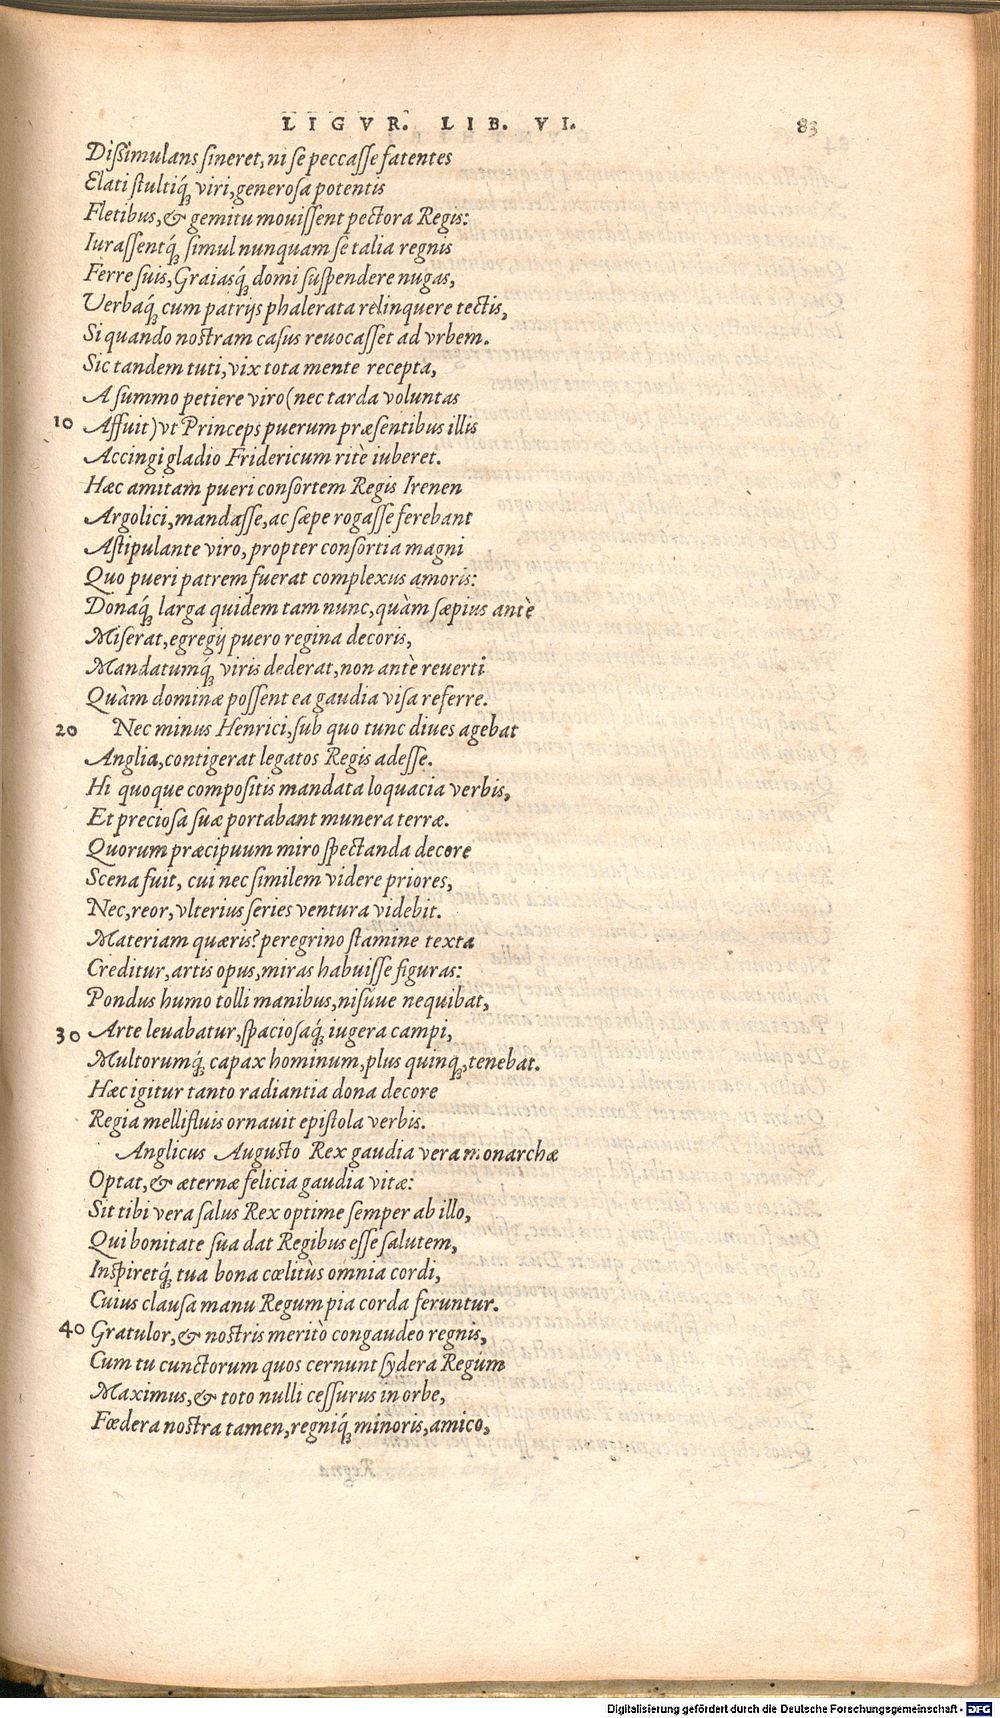 LIGVR. LIB. VI. 83
Dißimulans sineret, ni se peccasse fatentes
Elati stultiq́; viri, generosa potentis
Fletibus, & gemitu mouissent pectora Regis:
Iurassentq́; simul nunquam se talia regnis
Ferre suis, Graiasq́; domi suspendere nugas,
Verbaq́; cum patrijs phalerata relinquere tectis,
Si quando nostram casus reuocasset ad vrbem.
Sic tandem tuti, vix tota mente recepta,
A summo petiere viro (nec tarda voluntas
10 Affuit) vt Princeps puerum præsentibus illis
Accingi gladio Fridericum ritè iuberet.
Hæc amitam pueri consortem Regis Irenen
Argolici, mandasse, ac sæpe rogasse ferebant
Astipulante viro, propter consortia magni
Quo pueri patrem fuerat complexus amoris:
Donaq́; larga quidem tam nunc, quàm sæpius antè
Miserat, egregij puero regina decoris,
Mandatumq́; viris dederat, non antè reuerti
Quàm dominæ possent ea gaudia visa referre.
20 Nec minus Henrici, sub quo tunc diues agebat
Anglia, contigerat legatos Regis adesse.
Hi quoque compositis mandata loquacia verbis,
Et preciosa suæ portabant munera terræ.
Quorum præcipuum miro spectanda decore
Scena fuit, cui nec similem videre priores,
Nec, reor, vlterius series ventura videbit.
Materiam quæris? peregrino stamine texta
Creditur, artis opus, miras habuisse figuras:
Pondus humo tolli manibus, nisúue nequibat,
30 Arte leuabatur, spaciosaq́; iugera campi,
Multorumq́; capax hominum, plus quinq;, tenebat.
Hæc igitur tanto radiantia dona decore
Regia mellifluis ornauit epistola verbis.
Anglicus Augusto Rex gaudia vera monarchæ
Optat, & æternæ felicia gaudia vitæ:
Sit tibi vera salus Rex optime semper ab illo,
Qui bonitate sua dat Regibus esse salutem,
Inspiretq́; tua bona cœlitùs omnia cordi,
Cuius clausa manu Regum pia corda feruntur.
40 Gratulor, & nostris meritò congaudeo regnis,
Cum tu cunctorum quos cernunt sydera Regum
Maximus, & toto nulli cessurus in orbe,
Fœdera nostra tamen, regniq́; minoris, amico,
Digitalisierung gefördert durch die Deutsche Forschungsgemeinschaft - DFG